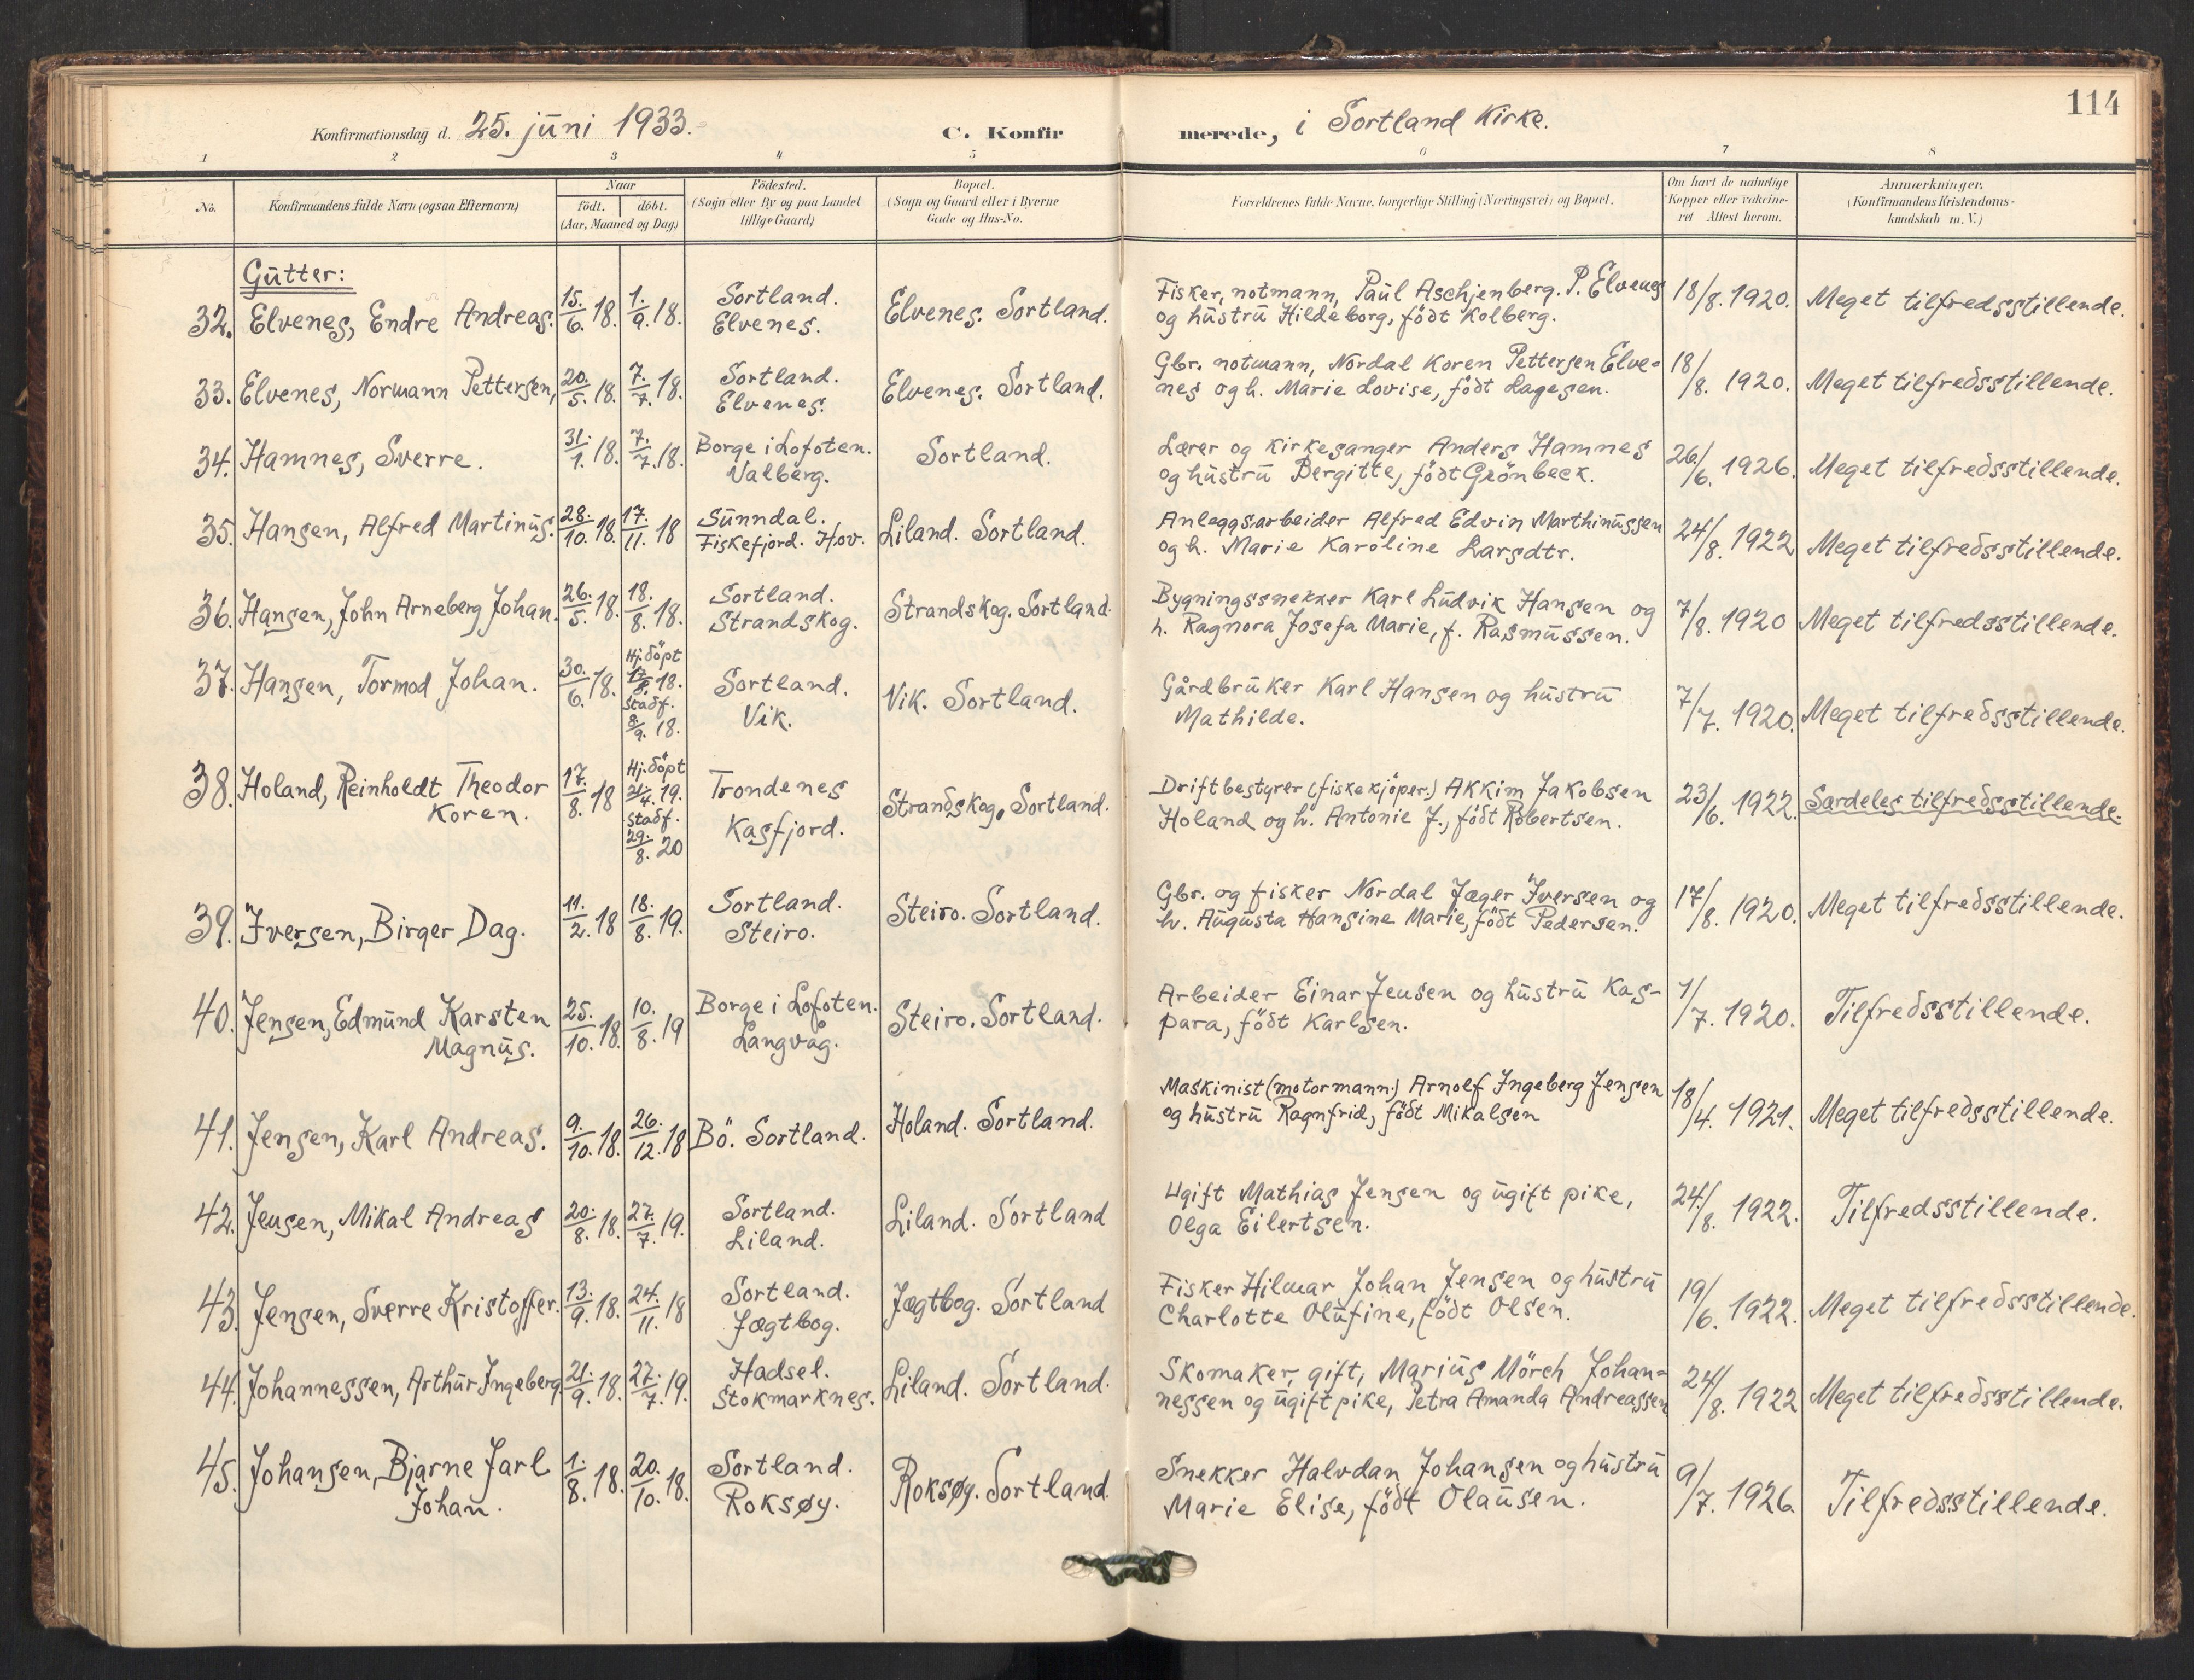 114
Konfirmationsdag d. 25. juni 1933. C. Konfirmerede, i Sortland Kirke.
1 2 3 4 5 6 7 8
No. Konfirmandens fulde Navn (ogsaa Efternavn) Naar født. døbt. (Aar, Maaned og Dag) Fødested. (Sogn eller By og paa Landet tillige Gaard) Bopæl. (Sogn og Gaard eller i Byerne Gade og Hus-No. Forældrenes fulde Navne, borgerlige Stilling (Næringsvei) og Bopæl. Om havt de naturlige Kopper eller vakcineret Attest herom. Anmærkninger. (Konfirmandens Kristendomskundskab m. V.)
Gutter:
32. Elvenes, Endre Andreas. 15./6. 18. 1./9. 18. Sortland. Elvenes. Elvenes. Sortland. Fisker, notmann, Paul Aschjenberg. P. Elvenes
og hustru Hildeborg, født Kolberg. 18/8. 1920. Meget tilfredsstillende.
33. Elvenes, Normann Pettersen, 20./5. 18. 7./7. 18. Sortland. Elvenes. Elvenes. Sortland. Gbr. notmann, Nordal Koren Pettersen Elve=
nes og h. Marie Lovise, født Lagesen. 18/8. 1920. Meget tilfredsstillende.
34. Hamnes, Sverre. 31./1. 18. 7./7. 18. Borge i Lofoten. Valberg. Sortland. Lærer og kirkesanger Anders Hamnes
og hustru Bergitte, født Grönbeck. 26/6. 1926. Meget tilfredsstillende.
35. Hansen, Alfred Martinus. 28./10. 18. 17./11. 18 Sunndal. Fiskefjord. Hov. Liland. Sortland. Anleggsarbeider Alfred Edvin Marthinussen
og h. Marie Karoline Larsdtr. 24/8. 1922 Meget tilfredsstillende.
36. Hansen, John Arneberg Johan. 26./5. 18. 18./8. 18. Sortland. Strandskog. Strandskog. Sortland. Bygningssnekker Karl Ludvik Hansen og
h. Ragnora Josefa Marie, f. Rasmussen. 7/8. 1920 Meget tilfredsstillende.
37. Hansen, Tormod Johan. 30./6. 18. Hj.döpt 17/8. 18. stadf. 8/9. 18. Sortland. Vik. Vik. Sortland. Gårdbruker Karl Hansen og hustru
Mathilde. 7/7. 1920. Meget tilfredsstillende.
38. Holand, Reinholdt Theodor
Koren. 17./8. 18 Hj.döpt 21/4. 19. stadf. 29./8. 20 Trondenes Kasfjord. Strandskog. Sortland. Driftbestyrer (fiskekjöper.) Akkim Jakobsen
Holand og h. Antonie J., født Robertsen. 23/6. 1922. Særdeles tilfredsstillende.
39. Iversen, Birger Dag. 11./2. 18 18./8. 19. Sortland. Steiro. Steiro. Sortland. Gbr. og fisker Nordal Jæger Iversen og
h. Augusta Hansine Marie, født Pedersen. 17/8. 1920. Meget tilfredsstillende.
40. Jensen, Edmund Karsten
Magnus. 25./10. 18. 10./8. 19 Borge i Lofoten. Langvåg. Steiro. Sortland. Arbeider Einar Jensen og hustru Kas-
para, født Karlsen. 1/7. 1920. Tilfredsstillende.
41. Jensen, Karl Andreas. 9./10. 18. 26./12. 18 Bö. Sortland. Holand. Sortland. Maskinist (motormann.) Arnolf Ingeberg Jensen
og hustru Ragnfrid, født Mikalsen 18/4. 1921. Meget tilfredsstillende.
42. Jensen, Mikal Andreas 20./8. 18. 27./7. 19. Sortland. Liland. Liland. Sortland Ugift Mathias Jensen og ugift pike,
Olga Eilertsen. 24/8. 1922. Tilfredsstillende.
43. Jensen, Sverre Kristoffer. 13./9. 18. 24./11. 18 Sortland. Jægtbog. Jægtbog. Sortland Fisker Hilmar Johan Jensen og hustru
Charlotte Olufine, født Olsen. 19/6. 1922. Meget tilfredsstillende.
44. Johannessen, Arthur Ingeberg 21./9. 18. 27./7. 19. Hadsel. Stokmarknes. Liland. Sortland. Skomaker, gift, Marius Mörch Johan=
nessen og ugift pike, Petra Amanda Andreassen 24/8. 1922 Meget tilfredsstillende.
45. Johansen, Bjarne Jarl
Johan. 1./8. 18. 20./10. 18. Sortland. Roksøy. Roksøy. Sortland. Snekker Halvdan Johansen og hustru
Marie Elise, født Olausen. 9/7. 1926. Tilfredsstillende.